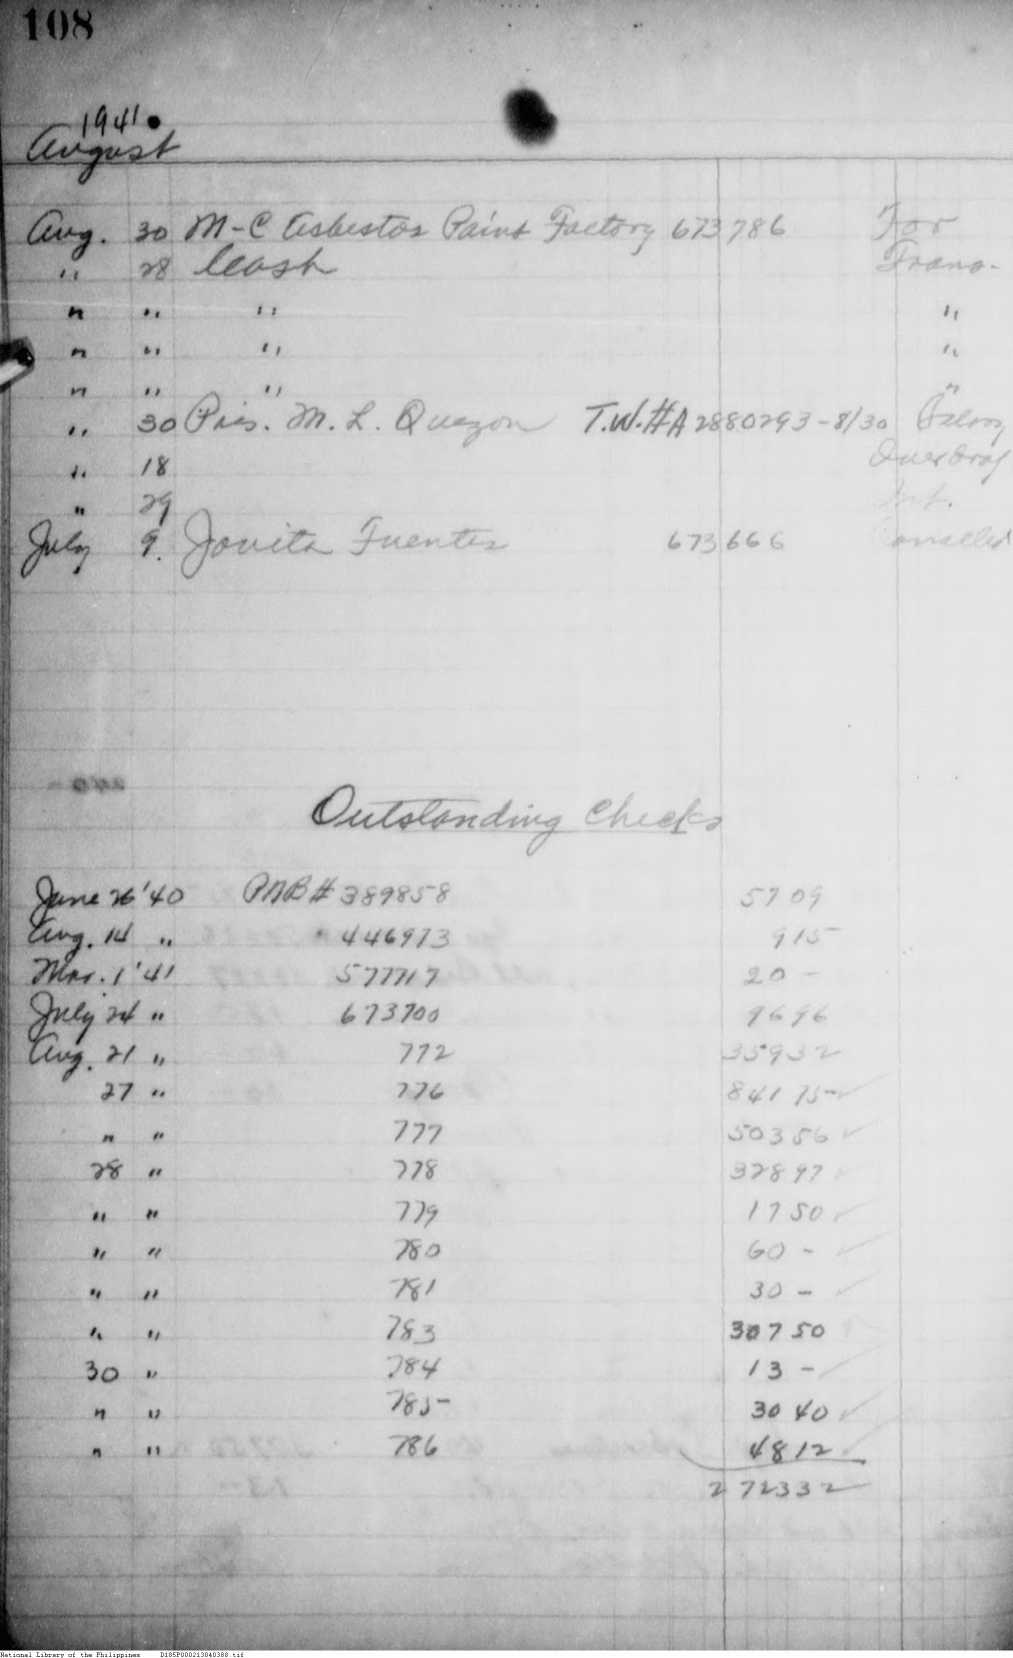 108
1941
August
Aug. 30 M-C Asbestos Paint Factory 673786 For
" 28 Cash Trans-
" " " "
" " " "
" " " "
" 30 Pres. M. L. Quezon T.W.#A2880293-8/30
" 18
" 29 Int.
July 9. Jovita Fuentes 673666 Cancelled
Outstanding Checks
June 26 '40 PNB# 389858 57 09
Aug. 14 " " 446973 9 15
Mar. 1 '41 577717 20 -
July 24 " 673700 96 96
Aug. 21 " 772 359 32
27 " 776 841 75
" " 777 503 56
28 " 778 328 97
" " 779 17 50
" " 780 60 -
" " 781 30 -
" " 783 307 50
30 " 784 13 -
" " 785 30 40
" " 786 48 12
2 723 32
National Library of the Philippines D185P000213040388.tif